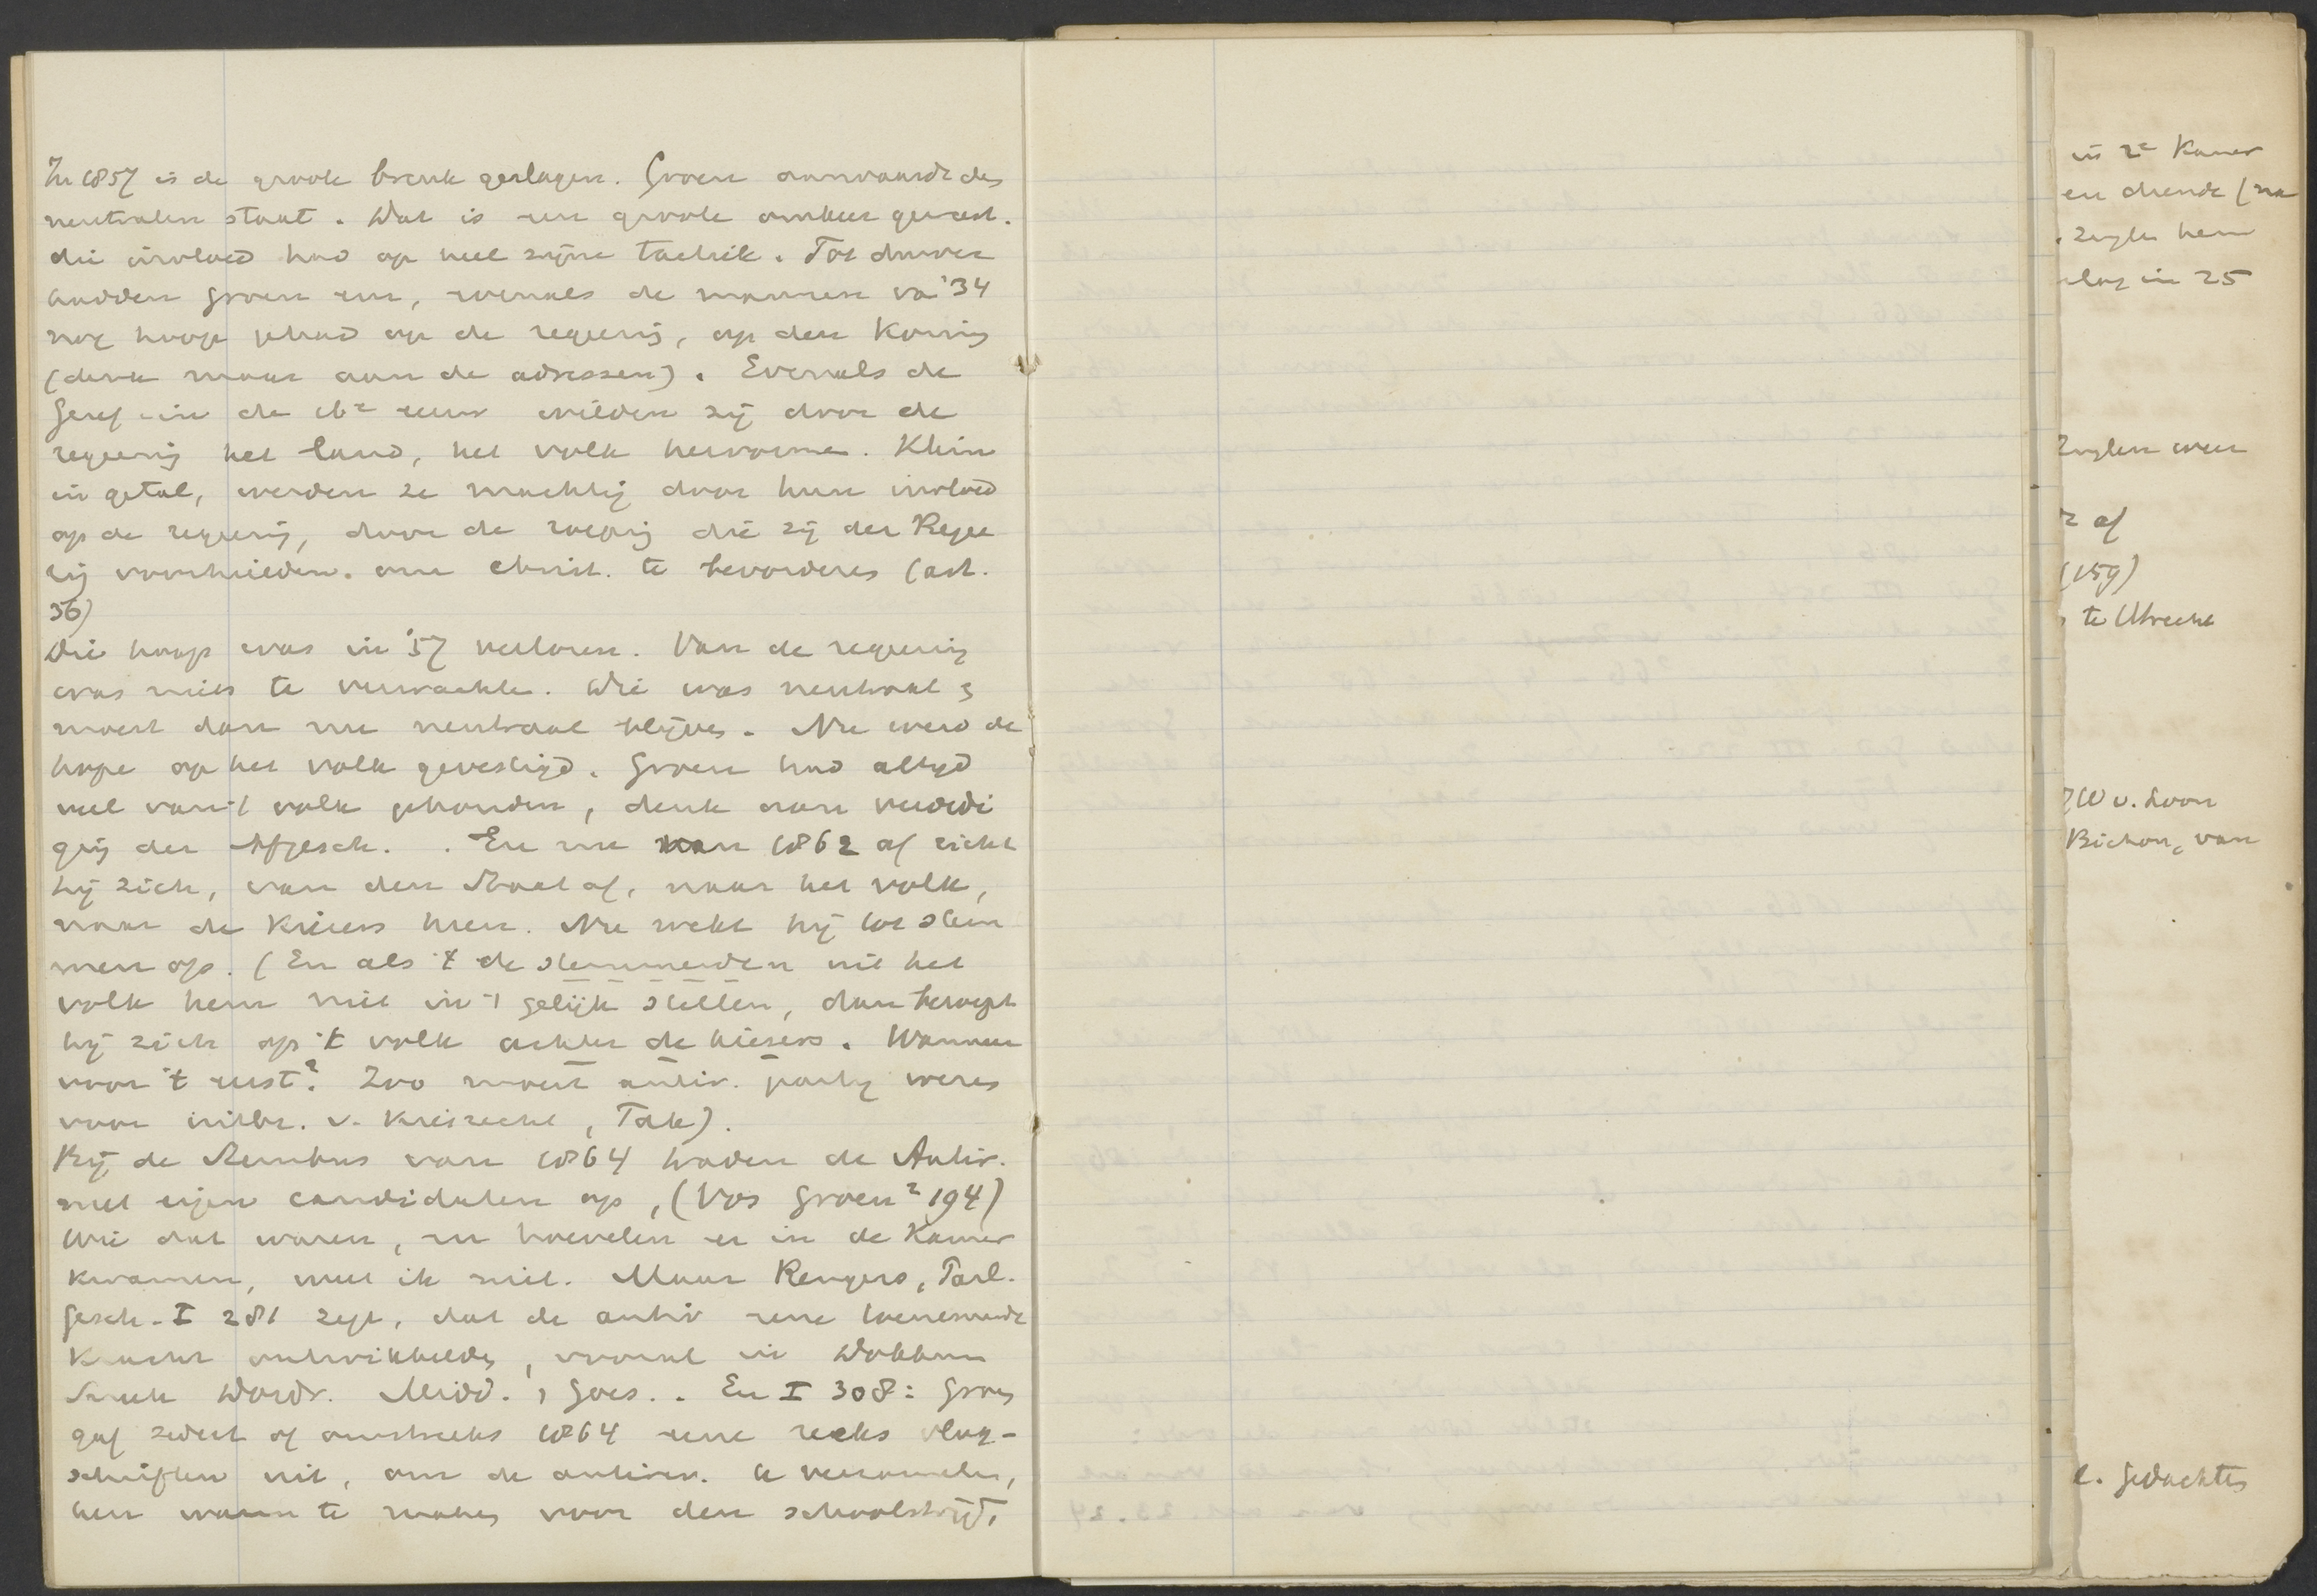 In 1857 is de groote breuk geslagen. Groen aanvaardt den
neutralen staat. Dat is een groote omkeer geweest.
die invloed had op heel zijne tactiek. Tot dusver
hadden Groen en, evenals de mannen va '34
nog hoop gehad op de regering, op den Koning
(denk maar aan de adressen). Evenals de
Geref in de 16e eeuw wilden zij door de
regeering het land, het volk hervormen. Klein
in getal, werden ze machtig door hun invloed
op de regeering, door de roeping die zij der Regee
ring voorhielden. om christ. te bevorderen (art.
36)
Die hoop was in '57 verloren. Van de regeering
was niets te verwachten. Die was neutraal &
moest dan nu neutraal blijven. Nu werd de
hope op het volk gevestigd. Groen had altijd
veel van 't volk gehouden, denk aan verdedi
ging der Afgesch. . En nu van 1862 af richt
hij zich, van den Staat af, naar het volk,
naar de kiezers heen. Nu wekt hij tot stem
men op. (En als 't de stemmenden uit het
volk hem niet in 't gelijk stellen, dan beroept
hij zich op 't volk achter de kiezers. Wanneer
voor 't eerst? Zoo moest antir. partij wezen
voor uitbr. v. Kiesrecht, Tak).
Bij de Stembus van 1864 traden de Antir.
met eigen candidaten op, (Vos Groen² 194)
Wie dat waren, en hoevelen er in de Kamer
kwamen, weet ik niet. Maar Rengers, Parl.
Gesch. I 281 zegt, dat de antir eene toenemende
kracht ontwikkelden, vooral in Dokkum
Sneek Dordr. Midd., Goes. . En I 308: Groen
gaf sedert of omstreeks 1864 eene reeks vlug-
schriften uit, om de antirev. te verzamelen,
hen warm te maken voor den schoolstrijd,
in 2e Kamer
en diende (na
. Zuylen hem
slag in 25
Zuylen weer
r af
(159)
te Utrecht
W v. Loon
Bichon, van
e. Gedachten